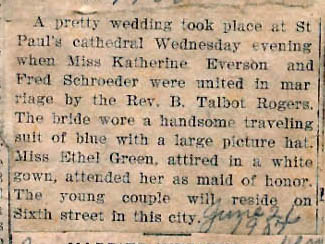 A pretty wedding took place at St
Paul's cathedral Wednesday evening
when Miss Katherine Everson and
Fred Schroeder were united in mar
riage by the Rev. B. Talbot Rogers.
The bride wore a handsome traveling
suit of blue with a large picture hat.
Miss Ethel Green, attired in a white
gown, attended her as maid of honor.
The young couple will reside on
Sixth street in this city.
June